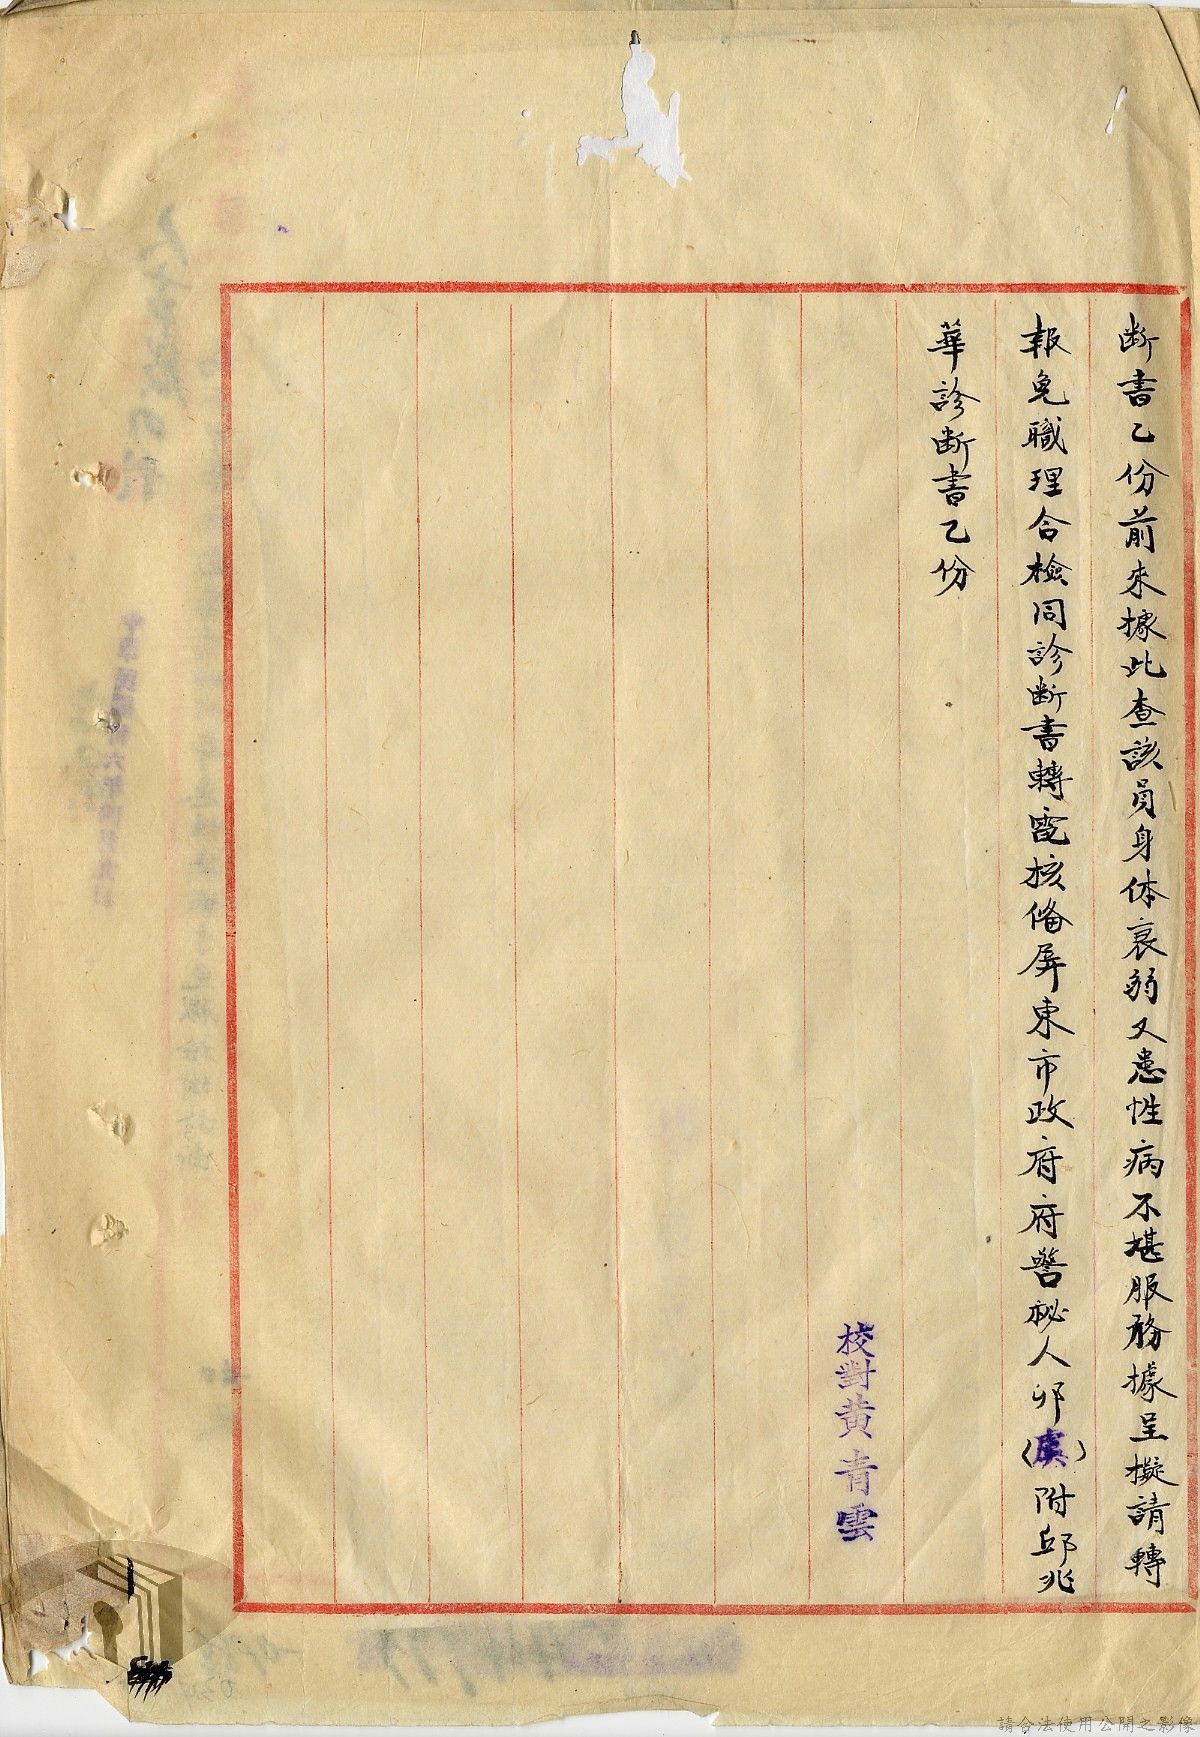 断書乙份前来據此查該員身体衰弱又患性病不堪服務據呈擬請轉
報免職理合檢同診断書轉電核俻屏東市政府府警秘人卯(虞)附邱兆
華診断書乙份
校對黄青雲
請合法使用公開之影像